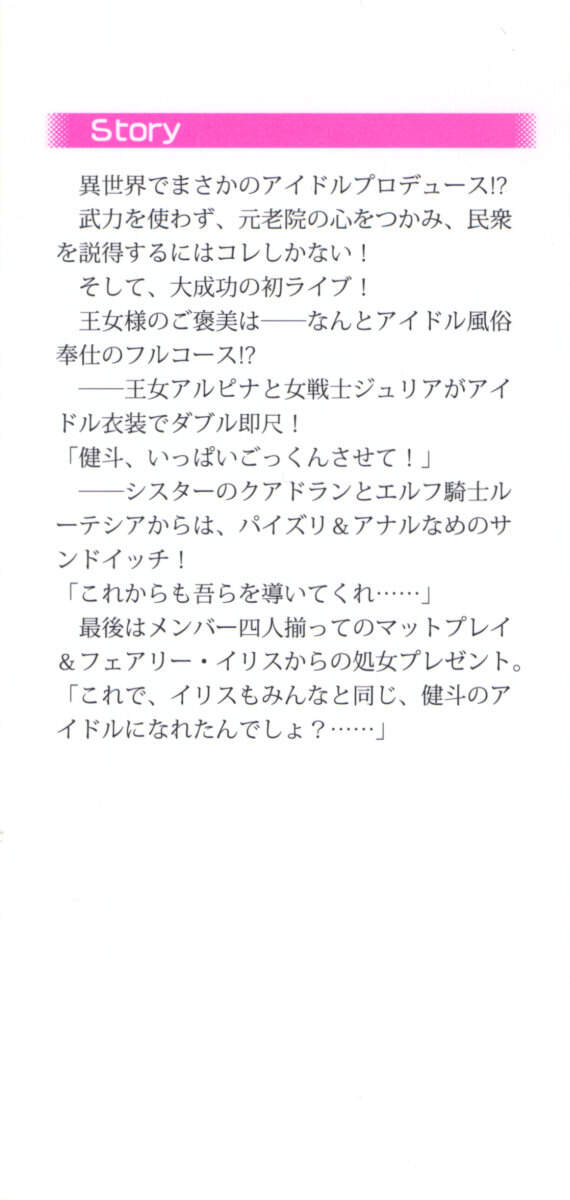 Story
異世界でまさかのアイドルプロデュース!?
武力を使わず、元老院の心をつかみ、民衆
を説得するにはコレしかない！
そして、大成功の初ライブ！
王女様のご褒美は――なんとアイドル風俗
奉仕のフルコース!?
――王女アルピナと女戦士ジュリアがアイ
ドル衣装でダブル即尺！
「健斗、いっぱいごっくんさせて！」
――シスターのクアドランとエルフ騎士ル
ーテシアからは、パイズリ＆アナルなめのサ
ンドイッチ！
「これからも吾らを導いてくれ……」
最後はメンバー四人揃ってのマットプレイ
＆フェアリー・イリスからの処女プレゼント。
「これで、イリスもみんなと同じ、健斗のア
イドルになれたんでしょ？……」